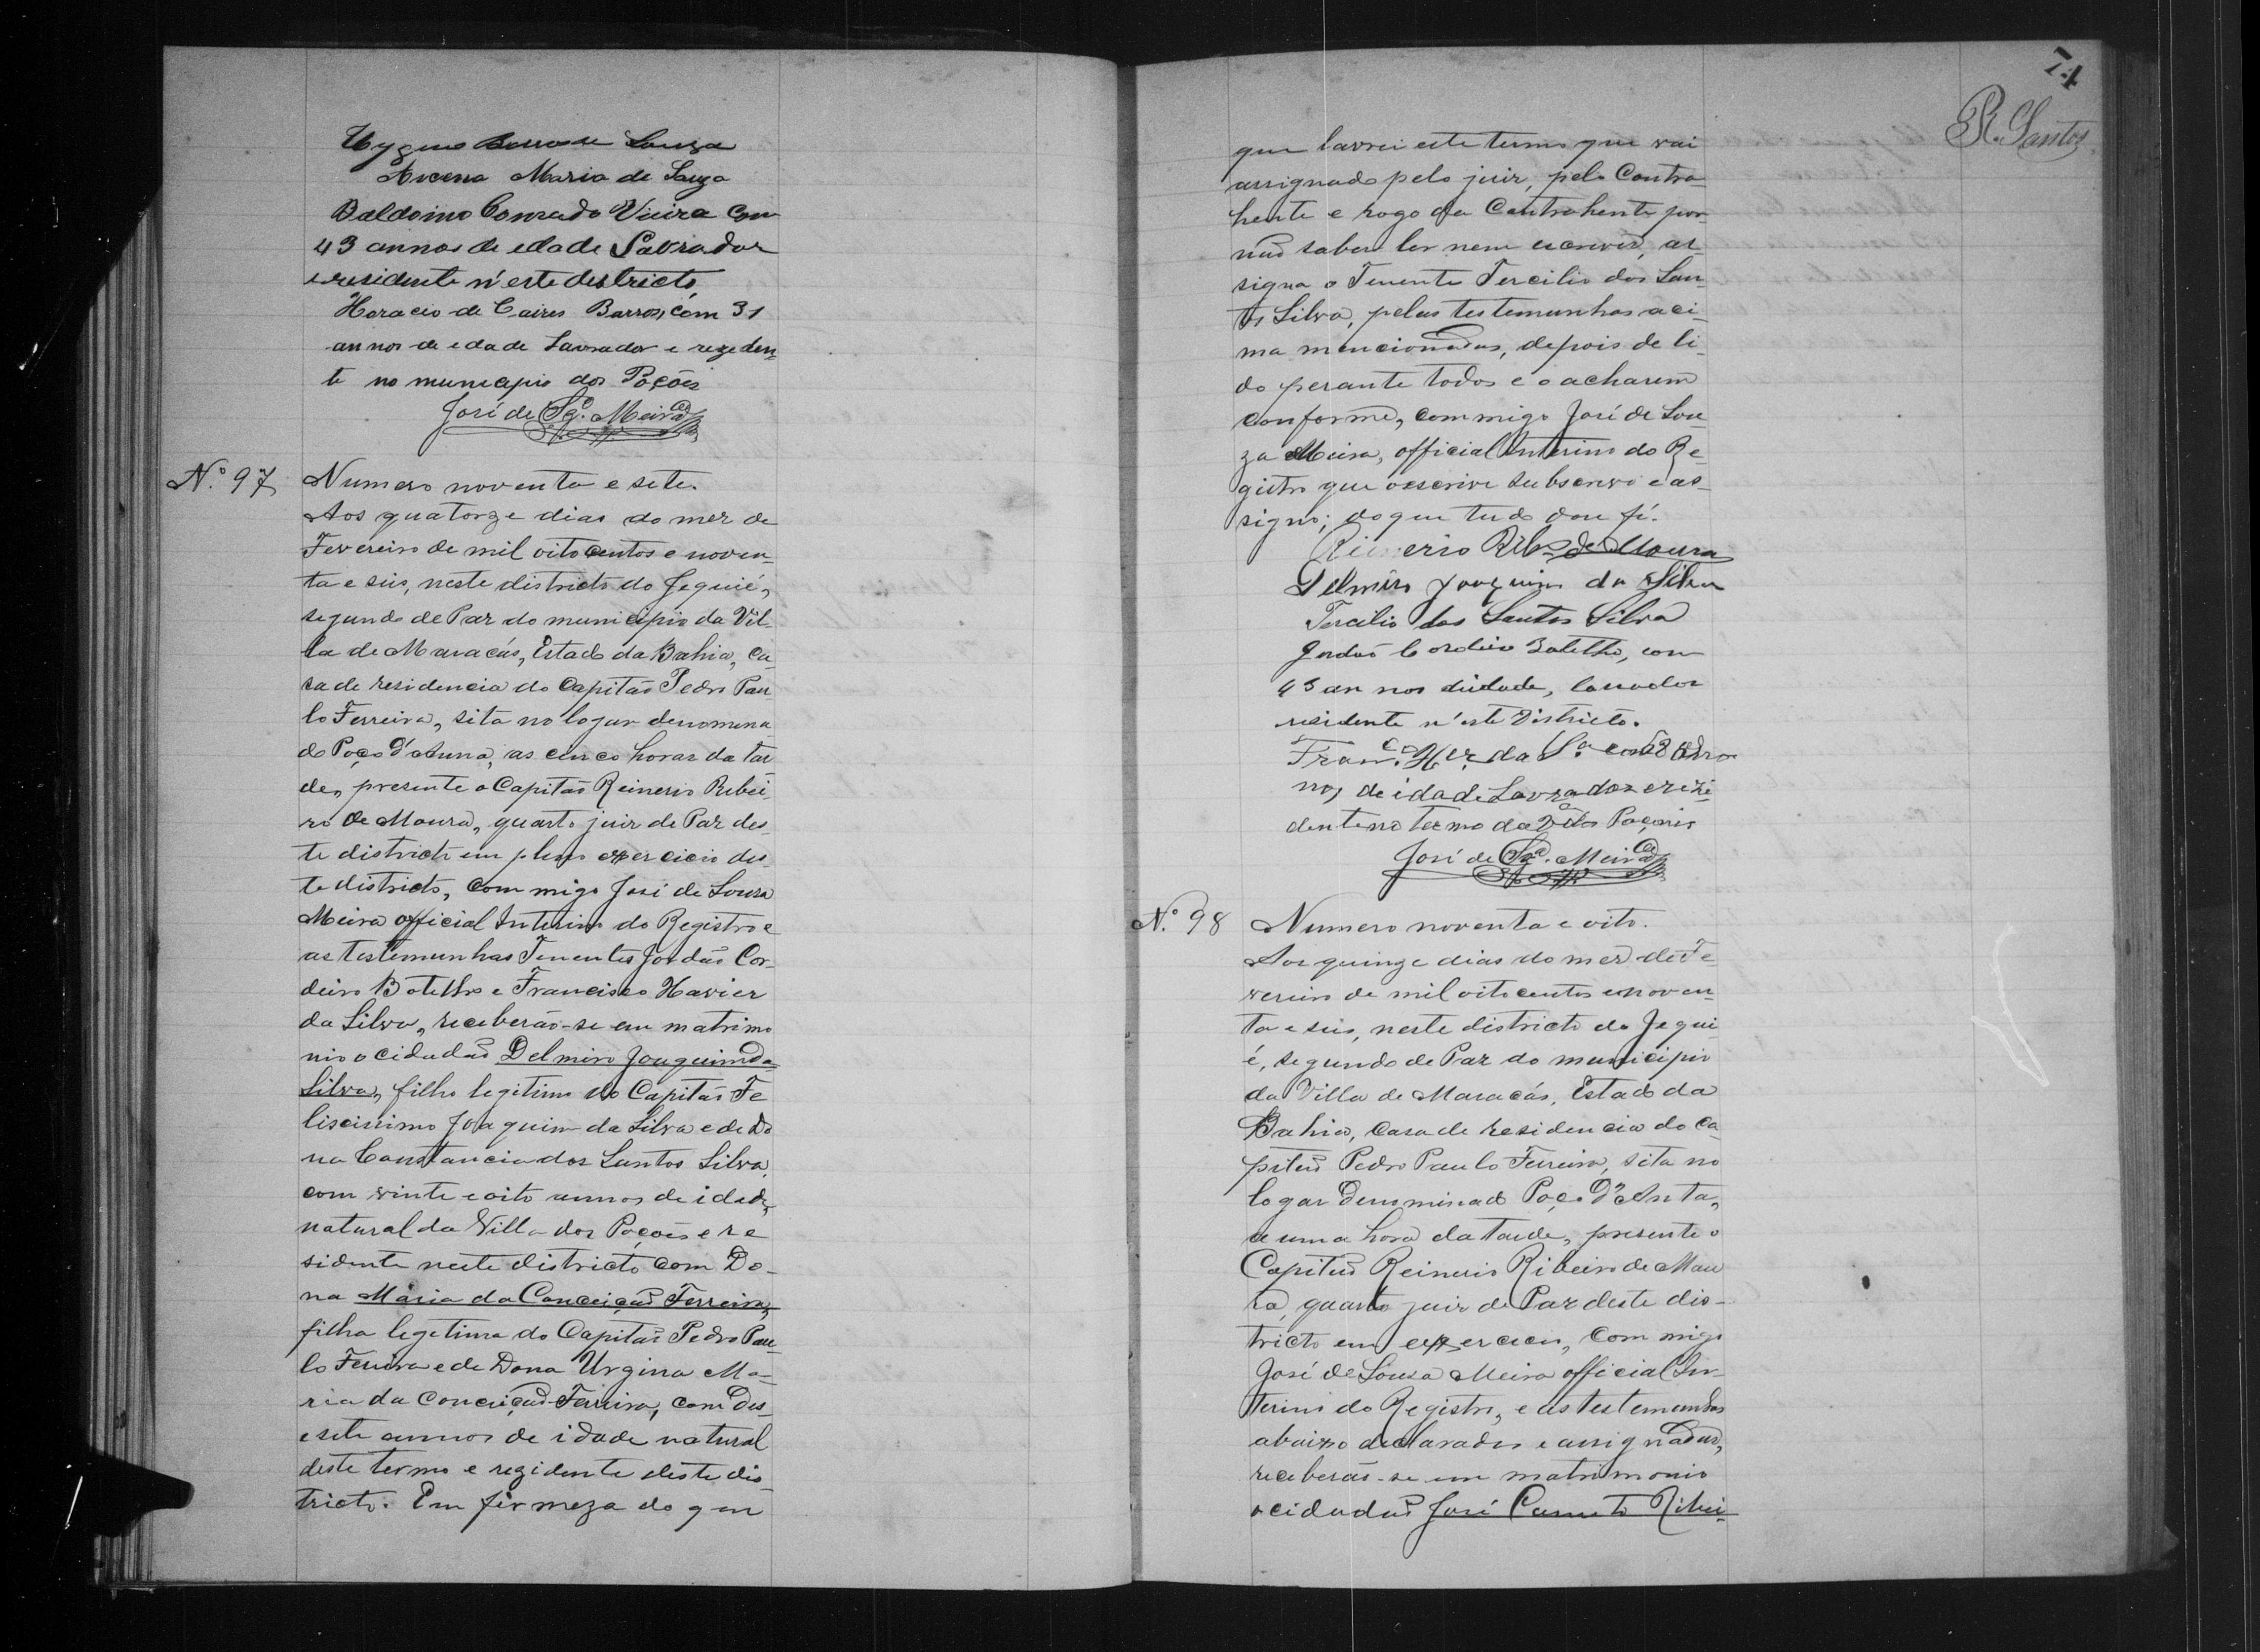 Hygino Barros de Souza
Avcena Maria de Souza
Baldoino Conrado Vieira Com
43 annos de edade Lavrador
e residente n'este destricto
Horacio de Caires Barros, com 31
annos de edade Lavrador e reziden
te no municipio dos Poções
José de Sza. Meira
Nº 97
Numero noventa e sete.
Aos quatorze dias do mez de
Fevereiro de mil oito centos e noven-
ta e seis, neste districto do Jequié,
segundo de Paz do municipio da Vil-
la de Maracás, Estado da Bahia, Ca-
sa de residencia do Capitão Pedro Pau
lo Ferreira, sita no logar denomina
do Poço d'Anna, as cinco horas da tar
de, presente o Capitão Reinerio Ribei-
ro de Moura, quarto juiz de Paz des-
te districto em pleno exercicio des-
te districto, com migo José de Sousa
Meira official Interino do Registro e
as testemunhas Tenentes Jordão Cor-
deiro Botelho e Francisco Xavier
da Silva, receberão-se em matrimo
nio o cidadão Delmiro Joaquim da
Silva, filho legitimo do Capitão Fe
liscissimo Joaquim da Silva e de Do
na Constancia dos Santos Silva,
com vinte e oito annos de idade,
natural da Villa dos Poções e re
sidente neste districto com Do-
na Maria da Conceição Ferreira,
filha legetima do Capitão Pedro Pau-
lo Ferreira e de Dona Urgina Ma-
ria da Conceição Ferreira, com des-
e sete annos de idade natural
deste termo e rezidente deste dis-
tricto. Em firmeza do que
74
R. Santos
que lavrei este termo que vai
assignado pelo juiz, pelo Contra-
hente e rogo da Contrahente por
não saber ler nem escrever, as-
signa o Tenente Tercilio dos San-
tos Silva, pelas testemunhas aci-
ma mencionadas, depois de li-
do perante todos e o acharem
conforme, com migo José de Sou-
za Meira, official Interino do Re-
gistro que o escrivi subscrevo e as-
signo; do que tudo dou fé.
Reinerio Ribro. de Moura
Delmiro Joaquim da Silva
Tercilio dos Santos Silva
Jordão Cordeiro Botelho, com
43 annos deidade, lavrador
residente n'este Districto.
Franco. Xer. da Sa. com 28 an
nos de idade Lavrador e rezi-
dente no termo da Va. dos Poções
José de Sza. Meira
Nº 98
Numero noventa e oito.
Aos quinze dias do mez de Fe-
vereiro de mil oitocentos e noven-
ta e seis, neste districto do Jequi-
é, segundo de Paz do municipio
da Villa de Maracás, Estado da
Bahia, Casa de residencia do Ca-
pitão Pedro Paulo Ferreira, sita no
logar denominado Poço D'Anta,
a uma hora da tarde, presente o
Capitão Reinerio Ribeiro de Mou
ra, quarto juiz de Paz deste dis-
tricto em exercicio, com migo
José de Sousa Meira official In-
terino do Registro, e as testemunhas
abaixo declarados e assignados,
receberão-se em matrimonio
o cidadão José Canuto Ribei-